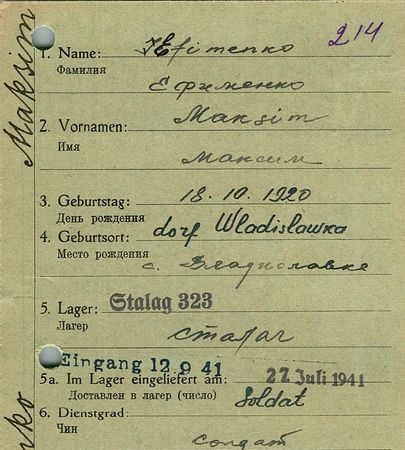 214
1. Name: Jefimenko
Фамилия
Ефименко
2. Vornamen: Maksim
Имя
Максим
3. Geburtstag: 18.10.1920
День рождения
4. Geburtsort: dorf Wladislawka
Место рождения
с. Владиславке
5. Lager: Stalag 323
Лагерь
сталаг
Eingang 12 9 41
5a. Im Lager eingeliefert am: 22 Juli 1941
Доставлен в лагерь (число)
6. Dienstgrad: Soldat
Чин
солдат
Maksim
nko